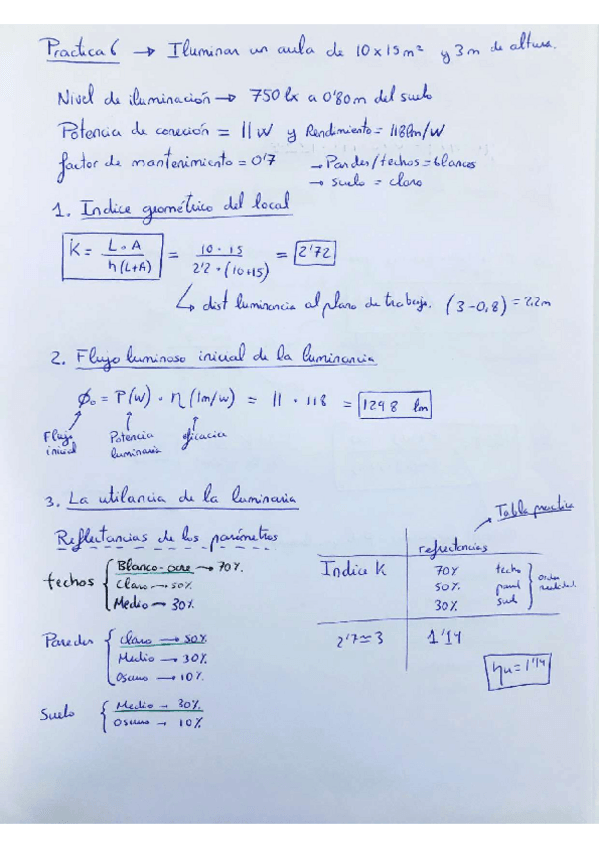 Practica 6 → Iluminar un aula de 10x15m² y 3m de altura.
Nivel de iluminación → 750 lx a 0'80m del suelo
Potencia de conexión = 11W y Rendimiento = 118lm/W
factor de mantenimiento = 0'7 → Pardes/techos = blancos
→ suelo = claro
1. Indice geométrico del local
K = L · A / h(L+A) = 10 · 15 / 2'2 · (10+15) = 2'72
↳ dist luminancia al plano de trabajo. (3-0,8) = 2.2m
2. Flujo luminoso inicial de la luminancia
ϕ₀ = P(w) · η (lm/w) = 11 · 118 = 1298 lm
Flujo inicial Potencia luminaria eficacia
3. La utilancia de la luminaria
Tabla practica
Reflectancias de los parámetros
techos { Blanco-claro → 70%.
Claro → 50%.
Medio → 30%
Paredes { Claro → 50%
Medio → 30%.
Oscuro → 10%.
Suelo { Medio → 30%.
Oscuro → 10%
reflectancias
Indice K 70% techo
50%. pared
30% suelo
2'7≃3 1'14
ηu = 1'14